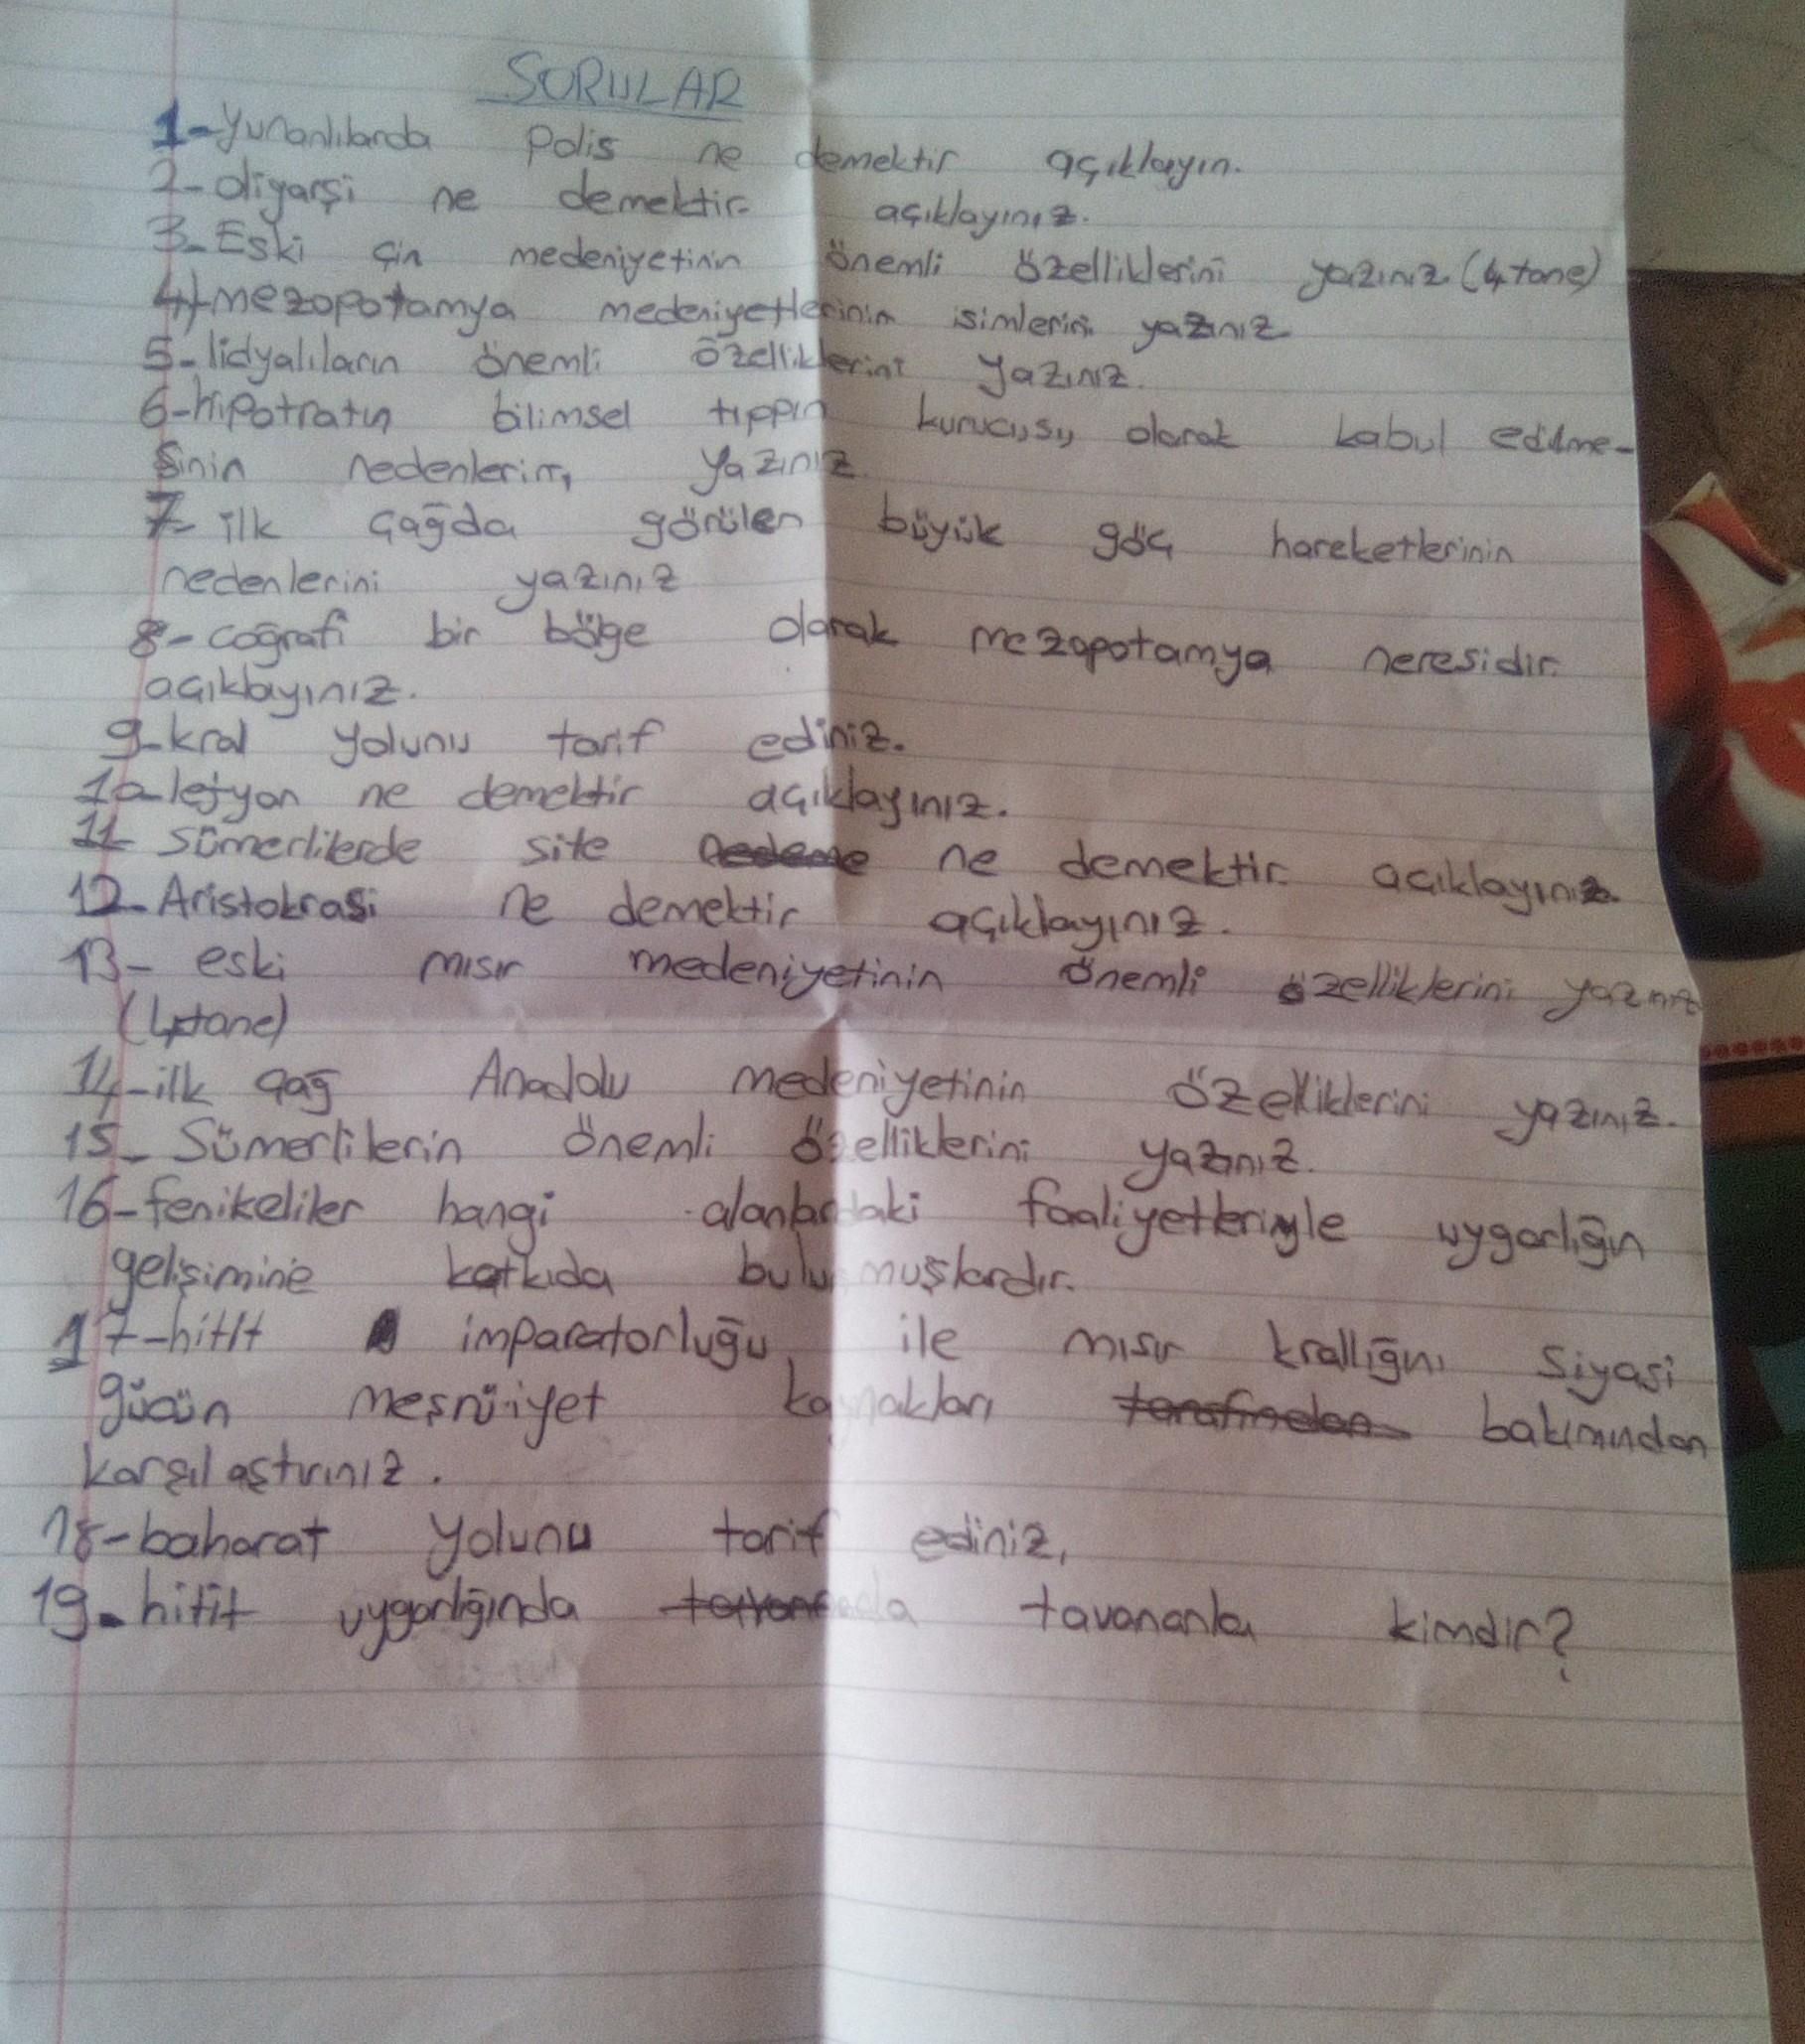 SORULAR
1-Yunanlılarda Polis ne demektir açıklayın.
2-oligarşi ne demektir açıklayınız.
3-Eski çin medeniyetinin önemli özelliklerini yazınız (4 tane)
4)mezopotamya medeniyetlerinin isimlerini yazınız
5-lidyalıların önemli özelliklerini yazınız.
6-hipotratın bilimsel tıppın kurucusu olarak kabul edilme-
sinin nedenlerini yazınız
7- ilk çağda görülen büyük göç hareketlerinin
nedenlerini yazınız
8-coğrafi bir bölge olarak mezopotamya neresidir.
açıklayınız.
9-kral yolunu tarif ediniz.
10-lejyon ne demektir açıklayınız.
11- Sümerlilerde site ne demektir açıklayınız.
12-Aristokrasi ne demektir açıklayınız.
13- eski mısır medeniyetinin önemli özelliklerini yazınız
(4tane)
14-ilk çağ Anadolu medeniyetinin özelliklerini yazınız.
15- Sümerlilerin önemli özelliklerini yazınız.
16-fenikeliler hangi alanlardaki faaliyetleriyle uygarlığın
gelişimine katkıda bulunmuşlardır.
17-hitit imparatorluğu ile mısır krallığını siyasi
gücün meşrüiyet kaynakları tarafından bakımından
karşılaştırınız.
18-baharat yolunu tarif ediniz,
19-hitit uygarlığında tavananla kimdir?